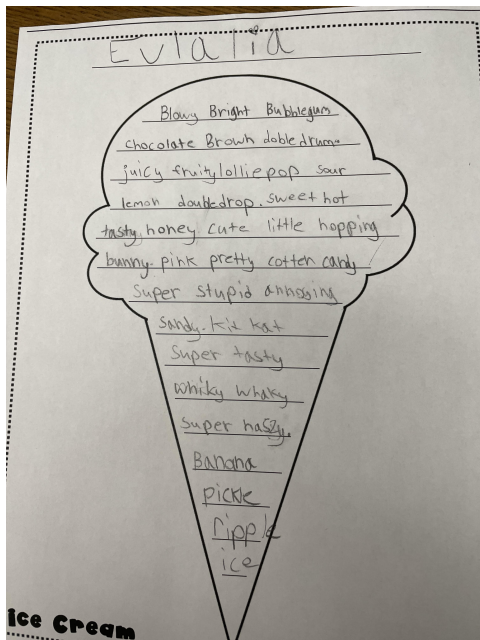 Evlalia
Blowy Bright Bubblegum
chocolate Brown doble drum
juicy fruity lollie pop sour
lemon doubledrop. sweet hot
tasty honey cute little hopping
bunny. pink pretty cotten candy
super stupid annoging
sandy. kit kat
super tasty
whiky whaky
super
Banana
pickle
ripple
ice
ice Cream